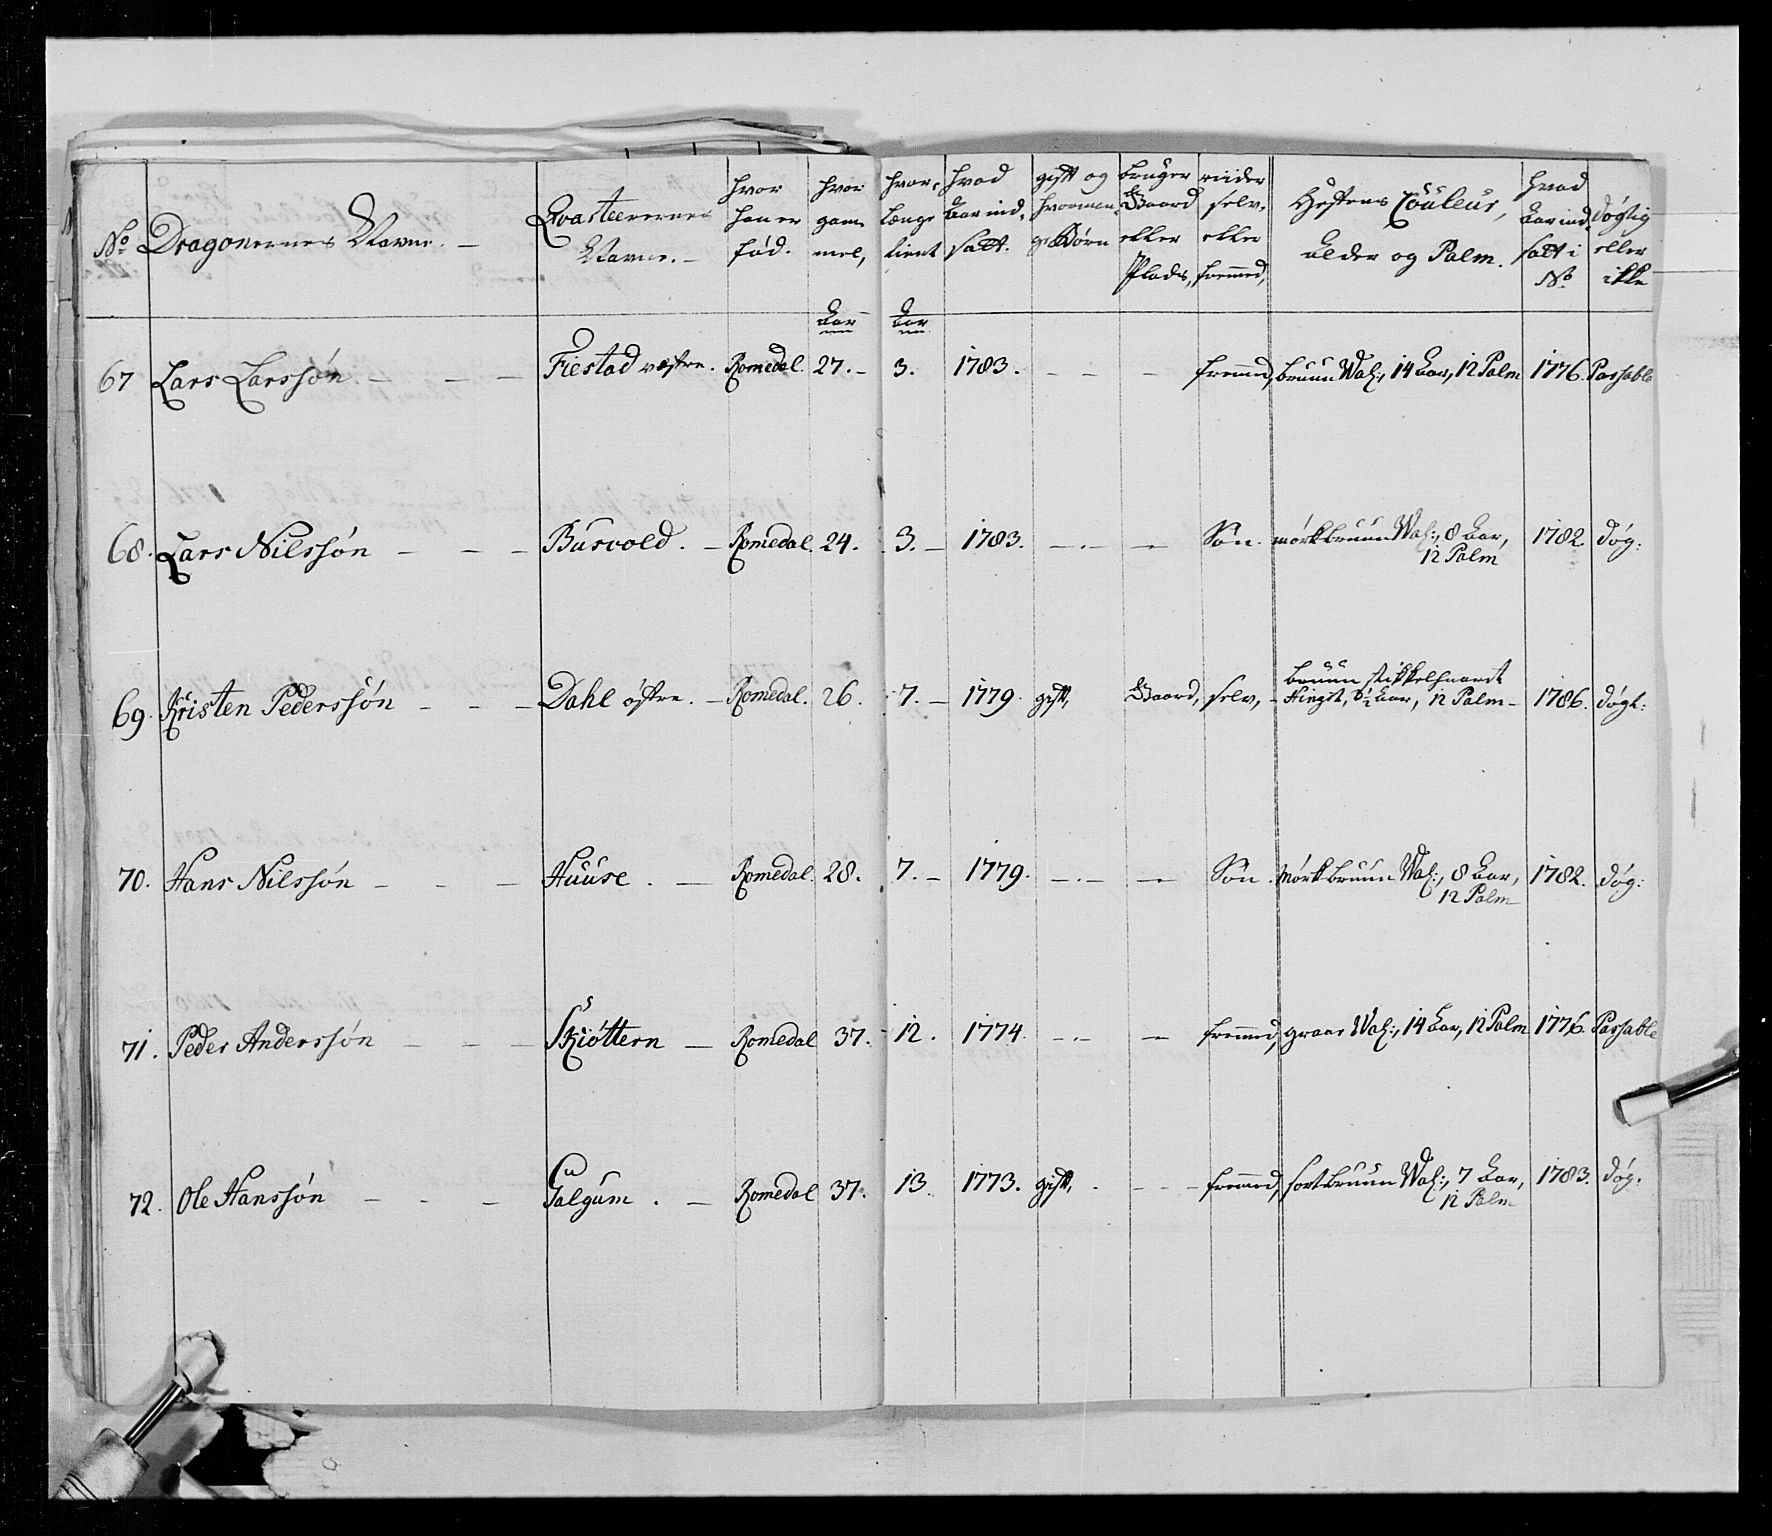 No Dragonernes Navne. — Qvarteerernes Navne. — hvor han er fød. hvor gam mel, hvor længe tient hvad Aar ind satt. gift og hvor man ge Børn bruger Gaard eller Plads, riider selv, eller fremmed, Hestens Couleur, Alder og Palm. hvad Aar ind satt i No døgtig eller ikke
Aar Aar
67 Lars Larssøn. — — — Fiestad vestre. Romedal. 27. — 3. 1783. — — — fremmed, bruun Wal:, 14 Aar, 12 Palm 1776. Passable
68. Lars Nilssøn — — — Busvold. — Romedal. 24. 3. — 1783. — — Søn. mørkbruun Wal:, 8 Aar, 12 Palm 1782. døg:
69. Kristen Pederssøn — — — Dahl østre. — Romedal. 26. 7. — 1779. gift, Gaard, selv, bruun stikkelhaaret Hingst, 5½ Aar, 12 Palm — 1786. døgt:
70. Hans Nilssøn — — — Huuse. — Romedal. 28. 7. — 1779. — — Søn. mørkbruun Wal:, 8 Aar, 12 Palm 1782. døg:
71. Peder Anderssøn — — — Skiøttern — Romedal 37. 12. 1774. — — fremmed, graae Wal:, 14 Aar, 12 Palm 1776. Passable
72. Ole Hanssøn — — — Galgum. — Romedal 37. 13. 1773. gift, — — — fremmed, sortbruun Wal:, 7 Aar, 12 Palm 1783. døg.